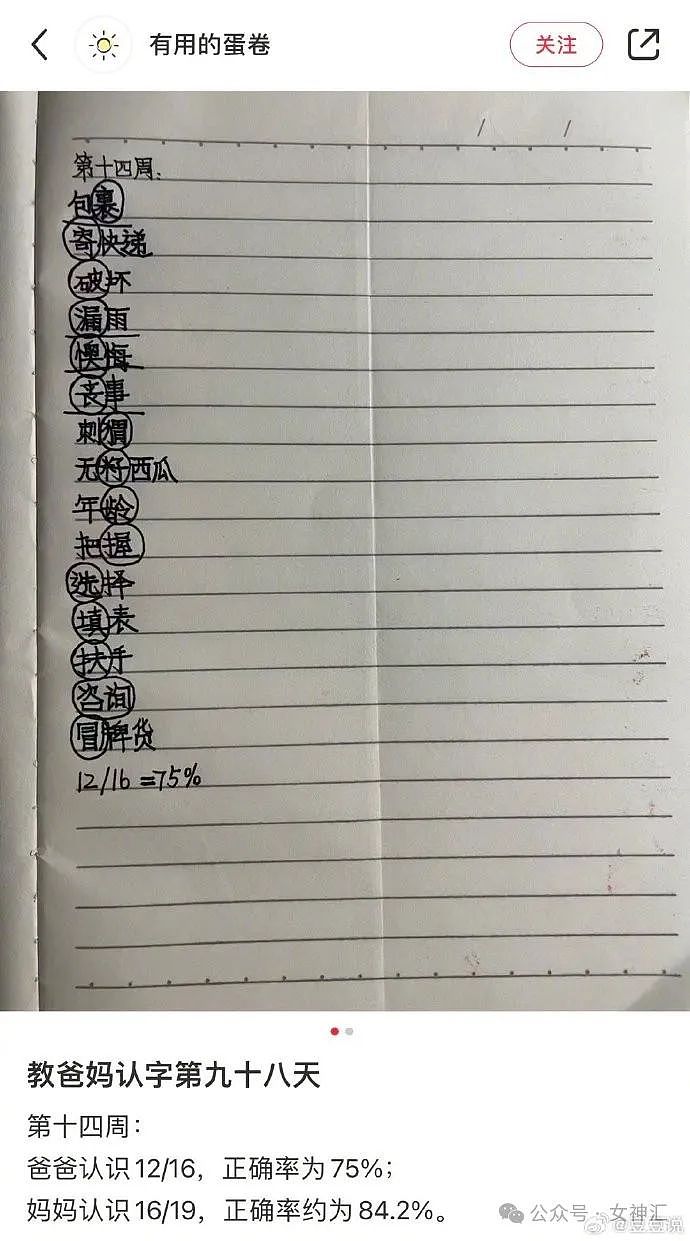 有用的蛋卷
关注
/ /
第十四周:
包裹
寄快递
破坏
漏雨
懊悔
丧事
刺猬
无籽西瓜
年龄
把握
选择
填表
扶手
咨询
冒牌货
12/16=75%
教爸妈认字第九十八天
第十四周：
爸爸认识12/16，正确率为75%；
妈妈认识16/19，正确率约为84.2%。
公众号·女神汇
@豆豆说